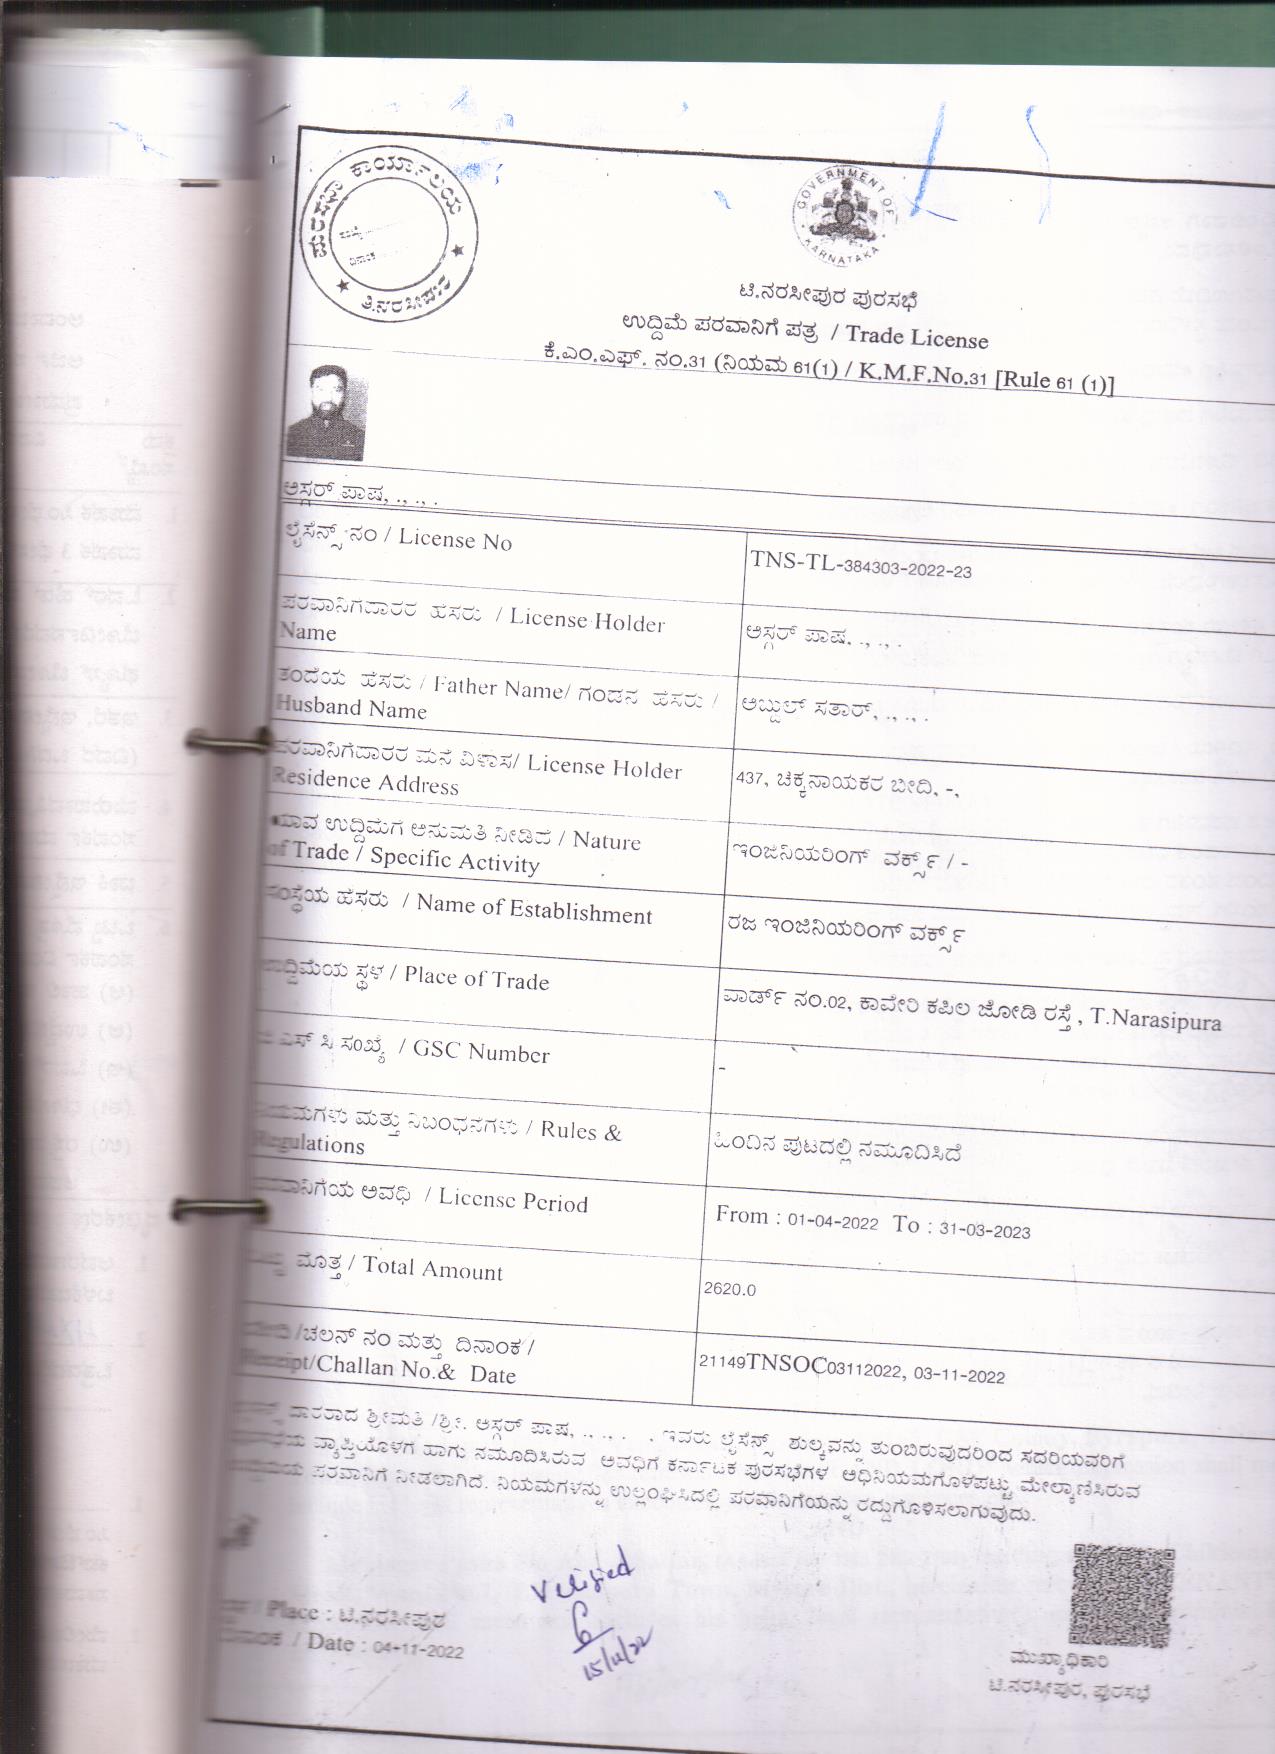 ಪುರಸಭಾ ಕಾರ್ಯಾಲಯ
ಸಂಖ್ಯೆ
ದಿನಾಂಕ
ತಿ.ನರಸೀಪುರ
GOVERNMENT OF
KARNATAKA
ಟಿ.ನರಸೀಪುರ ಪುರಸಭೆ
ಉದ್ದಿಮೆ ಪರವಾನಿಗೆ ಪತ್ರ / Trade License
ಕೆ.ಎಂ.ಎಫ್. ನಂ.31 (ನಿಯಮ 61(1) / K.M.F.No.31 [Rule 61 (1)]
ಅಸ್ಗರ್ ಪಾಷ, ., ., .
ಲೈಸೆನ್ಸ್ ನಂ / License No
TNS-TL-384303-2022-23
ಪರವಾನಿಗೆದಾರರ ಹೆಸರು / License Holder
Name
ಅಸ್ಗರ್ ಪಾಷ, ., ., .
ತಂದೆಯ ಹೆಸರು / Father Name/ ಗಂಡನ ಹೆಸರು /
Husband Name
ಅಬ್ದುಲ್ ಸತಾರ್, ., ., .
ಪರವಾನಿಗೆದಾರರ ಮನೆ ವಿಳಾಸ/ License Holder
Residence Address
437, ಚಿಕ್ಕನಾಯಕರ ಬೀದಿ, -,
ಯಾವ ಉದ್ದಿಮೆಗೆ ಅನುಮತಿ ನೀಡಿದೆ / Nature
of Trade / Specific Activity
ಇಂಜಿನಿಯರಿಂಗ್ ವರ್ಕ್ಸ್ / -
ಸಂಸ್ಥೆಯ ಹೆಸರು / Name of Establishment
ರಜ ಇಂಜಿನಿಯರಿಂಗ್ ವರ್ಕ್ಸ್
ಉದ್ದಿಮೆಯ ಸ್ಥಳ / Place of Trade
ವಾರ್ಡ್ ನಂ.02, ಕಾವೇರಿ ಕಪಿಲ ಜೋಡಿ ರಸ್ತೆ , T.Narasipura
ಎಸ್ ಸಿ ಸಂಖ್ಯೆ / GSC Number
-
ನಿಯಮಗಳು ಮತ್ತು ನಿಬಂಧನೆಗಳು / Rules &
Regulations
ಹಿಂದಿನ ಪುಟದಲ್ಲಿ ನಮೂದಿಸಿದೆ
ಪರವಾನಿಗೆಯ ಅವಧಿ / License Period
From : 01-04-2022 To : 31-03-2023
ಮೊತ್ತ / Total Amount
2620.0
/ಚಲನ್ ನಂ ಮತ್ತು ದಿನಾಂಕ /
Receipt/Challan No.& Date
21149TNSOC03112022, 03-11-2022
ದಾರರಾದ ಶ್ರೀಮತಿ /ಶ್ರೀ. ಅಸ್ಗರ್ ಪಾಷ, ., ., . . ಇವರು ಲೈಸೆನ್ಸ್ ಶುಲ್ಕವನ್ನು ತುಂಬಿರುವುದರಿಂದ ಸದರಿಯವರಿಗೆ
ವ್ಯಾಪ್ತಿಯೊಳಗೆ ಹಾಗು ನಮೂದಿಸಿರುವ ಅವಧಿಗೆ ಕರ್ನಾಟಕ ಪುರಸಭೆಗಳ ಅಧಿನಿಯಮಗೊಳಪಟ್ಟು ಮೇಲ್ಕಾಣಿಸಿರುವ
ಪರವಾನಿಗೆ ನೀಡಲಾಗಿದೆ. ನಿಯಮಗಳನ್ನು ಉಲ್ಲಂಘಿಸಿದಲ್ಲಿ ಪರವಾನಿಗೆಯನ್ನು ರದ್ದುಗೊಳಿಸಲಾಗುವುದು.
Verified
15/11/22
/ Place : ಟಿ.ನರಸೀಪುರ
ದಿನಾಂಕ / Date : 04-11-2022
ಮುಖ್ಯಾಧಿಕಾರಿ
ಟಿ.ನರಸೀಪುರ, ಪುರಸಭೆ